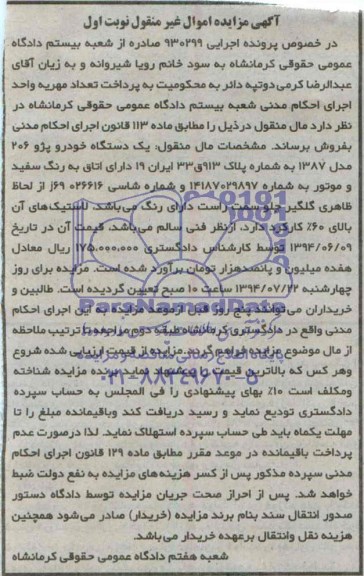 آگهی مزایده اموال غیر منقول نوبت اول
در خصوص پرونده اجرایی ۹۳۰۲۹۹ صادره از شعبه بیستم دادگاه
عمومی حقوقی کرمانشاه به سود خانم رویا شیروانه و به زیان آقای
عبدالرضا کرمی دوتپه دائر به محکومیت به پرداخت تعداد مهریه واحد
اجرای احکام مدنی شعبه بیستم دادگاه عمومی حقوقی کرمانشاه در
نظر دارد مال منقول در ذیل را مطابق ماده ۱۱۳ قانون اجرای احکام مدنی
بفروش برساند. مشخصات مال منقول: یک دستگاه خودرو پژو ۲۰۶
مدل ۱۳۸۷ به شماره پلاک ۹۱۳ق۳۳ ایران ۱۹ دارای اتاق به رنگ سفید
و موتور به شماره ۱۴۱۸۷۰۲۹۸۹۷ و شماره شاسی ۰۲۶۶۱۶ j۶۹ از لحاظ
ظاهری گلگیر جلو سمت راست دارای رنگ می‌باشد. لاستیک‌های آن
بالای ۶۰٪ کارکرد دارد. ازنظر فنی سالم می‌باشد. قیمت آن در تاریخ
۱۳۹۴/۰۶/۰۹ توسط کارشناس دادگستری ۱۷۵.۰۰۰.۰۰۰ ریال معادل
هفده میلیون و پانصدهزار تومان برآورد شده است. مزایده برای روز
چهارشنبه ۱۳۹۴/۰۷/۲۲ ساعت ۱۰ صبح تعیین گردیده است. طالبین و
خریداران می‌توانند پنج روز قبل ازموعد مزایده به این اجرای احکام
مدنی واقع در دادگستری کرمانشاه طبقه دوم مراجعه تا ترتیب ملاحظه
از مال موضوع مزایده فراهم گردد. مزایده از قیمت ارزیابی شده شروع
وهر کس که بالاترین قیمت را پیشنهاد نماید برنده مزایده شناخته
ومکلف است ۱۰٪ بهای پیشنهادی را فی المجلس به حساب سپرده
دادگستری تودیع نماید و رسید دریافت کند وباقیمانده مبلغ را تا
مهلت یکماه باید طی حساب سپرده استهلاک نماید. لذا درصورت عدم
پرداخت باقیمانده در موعد مقرر مطابق ماده ۱۲۹ قانون اجرای احکام
مدنی سپرده مذکور پس از کسر هزینه‌های مزایده به نفع دولت ضبط
خواهد شد. پس از احراز صحت جریان مزایده توسط دادگاه دستور
صدور انتقال سند بنام برند مزایده (خریدار) صادر می‌شود همچنین
هزینه نقل وانتقال برعهده خریدار می‌باشد.
شعبه هفتم دادگاه عمومی حقوقی کرمانشاه
ParsNamadData
پایگاه اطلاع رسانی مناقصه و مزایده
۰۲۱-۸۸۳۴۹۶۷۰-۵